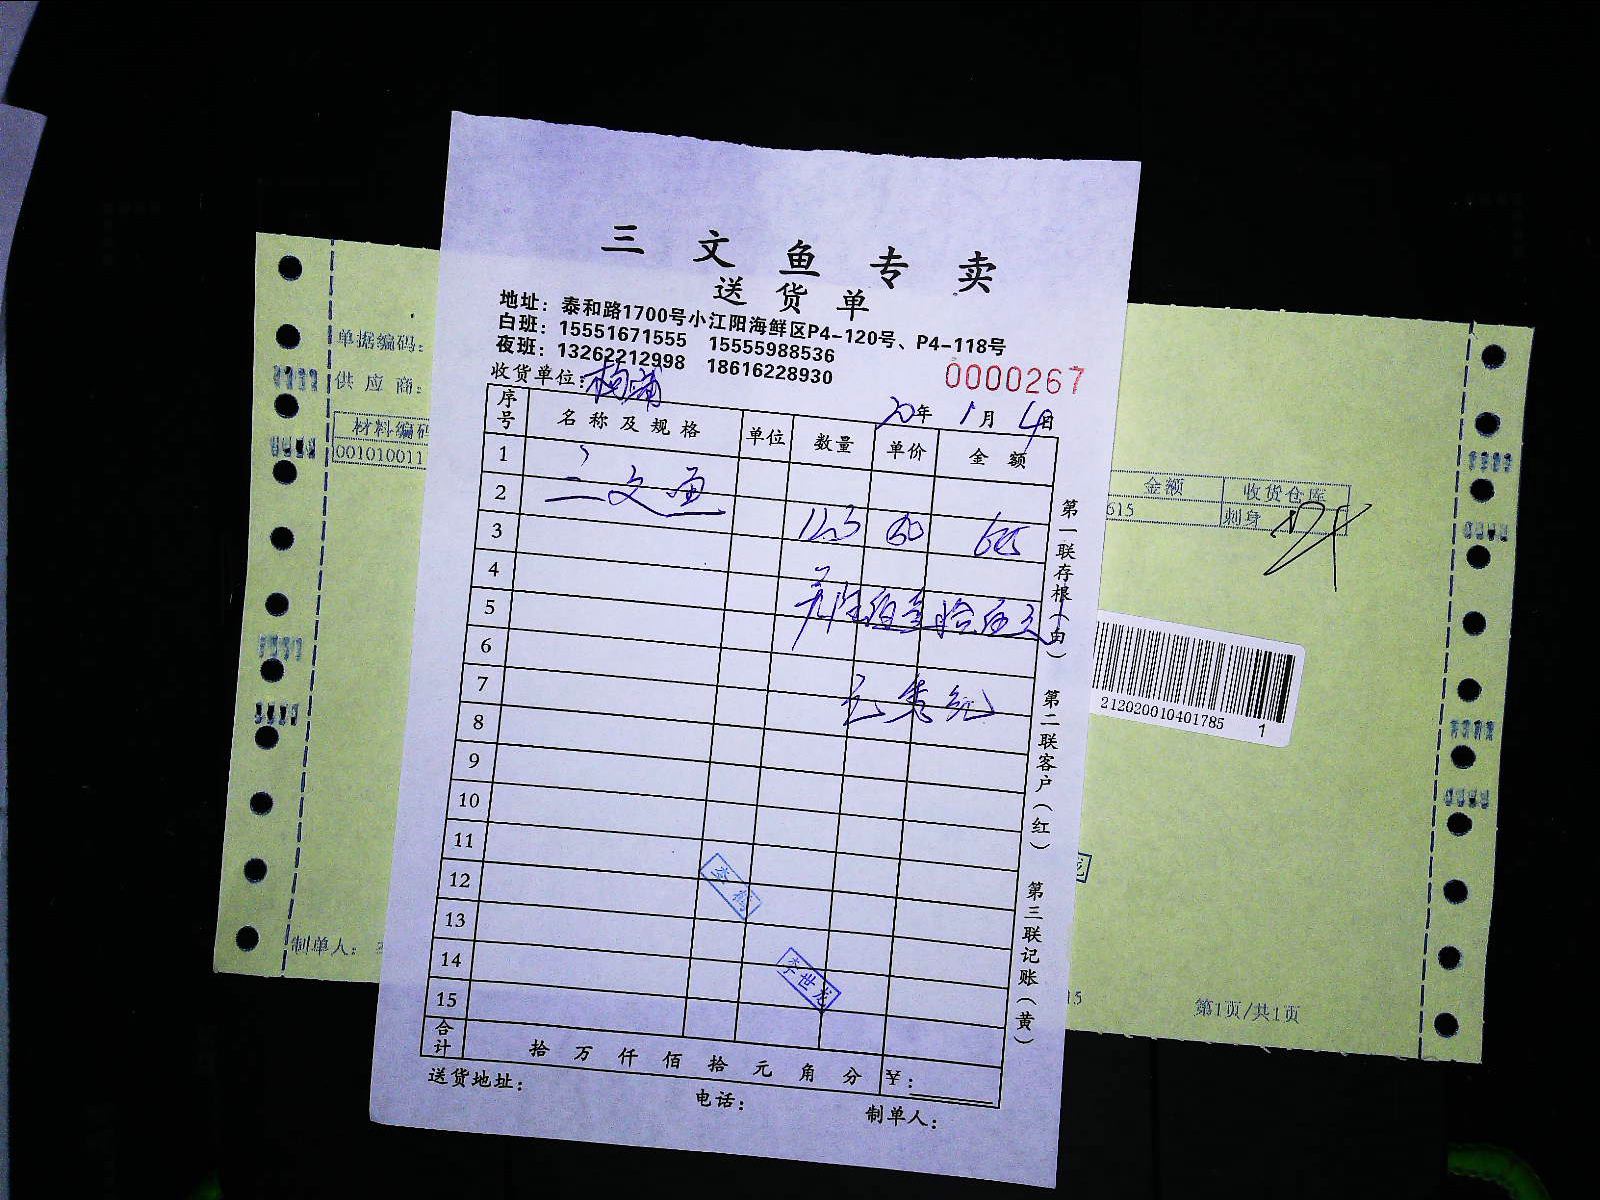 三文鱼专卖
送货单
地址：泰和路1700号小江阳海鲜区P4-120号、P4-118号
白班：15551671555 15555988536
夜班：13262212998 18616228930
0000267
收货单位：
20年1月4日
序号 名称及规格 单位 数量 单价 金额
1
2 三文鱼 12.3 50 615
3
4
5
6
7
8
9
10
11
12
13
14
15
合计 拾万仟佰拾元角分 ￥：
送货地址： 电话： 制单人：
第一联存根（白） 第二联客户（红） 第三联记账（黄）
李世龙
单据编码：
供应商：
材料编码
001010011
金额 收货仓库
615 刺身
212020010401785 1
制单人：
第1页/共1页